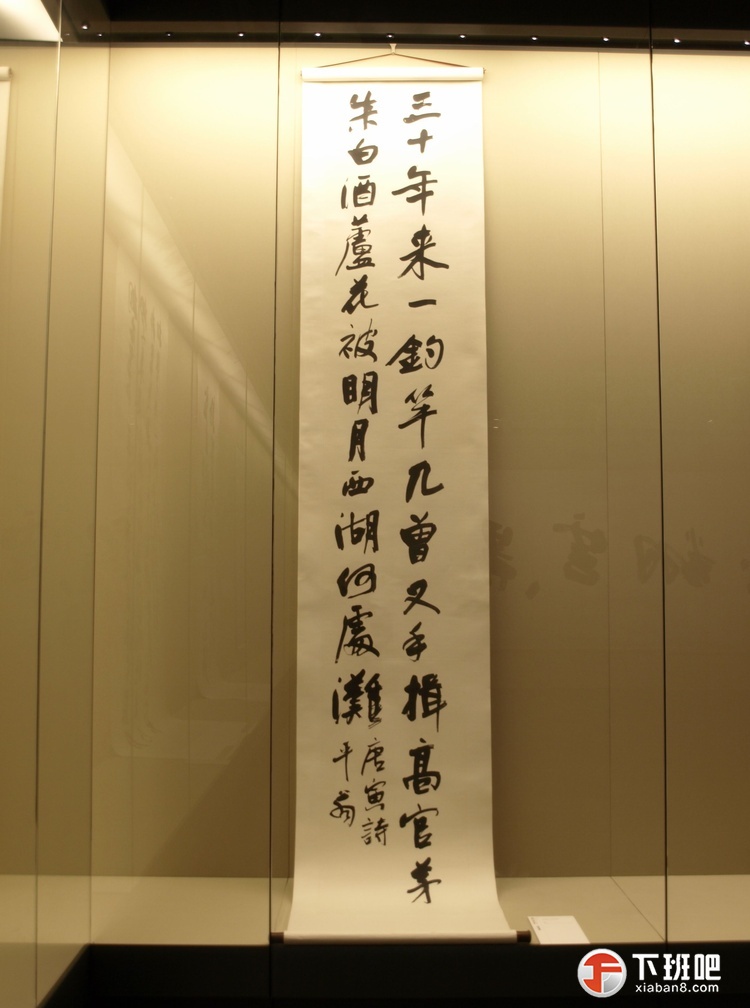 三十年来一釣竿几曾叉手揖高官茅
柴白酒蘆花被明月西湖何處灘
唐寅詩
平翁
下班吧
xiaban8.com